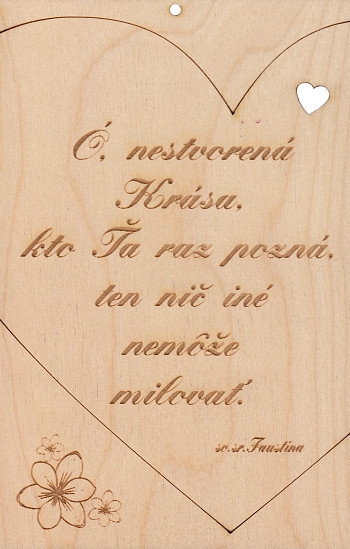 Ó, nestvorená
Krása,
kto Ťa raz pozná,
ten nič iné
nemôže
milovať.
sv. sr. Faustína